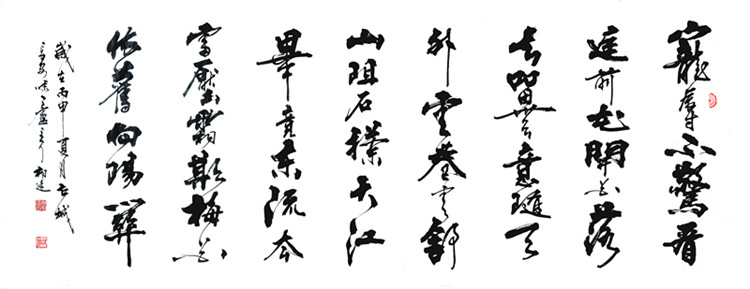 寵辱不驚看
庭前花開花落
去留無意隨天
外雲卷雲舒
山阻石攔大江
畢竟東流去
雪壓霜欺梅花
依舊向陽開
歲在丙申夏月古城